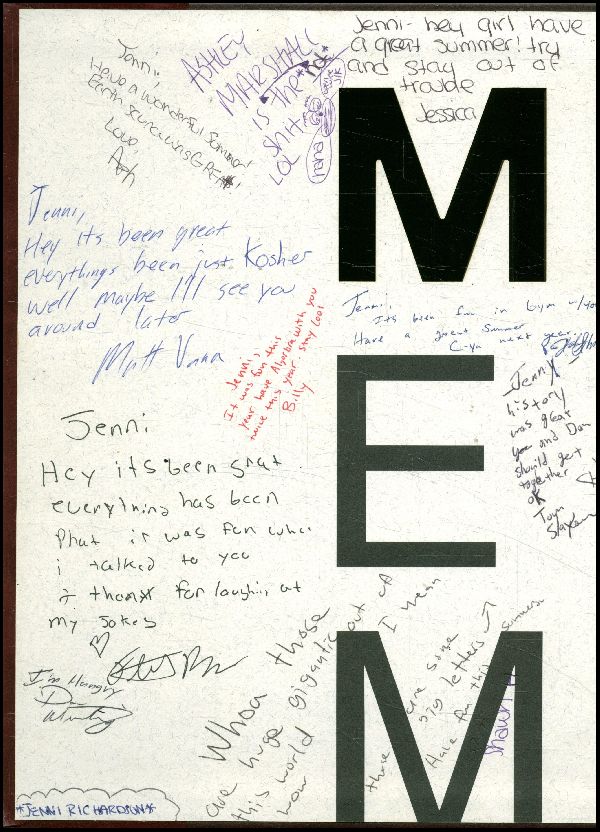 Jenni,
Have a wonderful Summer!
Earth science was GREAT!
Love
ASHLEY
MARSHALL
IS THE
SHIT
LOL
Jenni- hey girl have
a great summer! try
and stay out of
trouble
Jessica
M
Jenni,
Hey its been great
everythings been just Kosher
well maybe I'll see you
around later
Matt
Jenni,
It was fun this
year have Algerbra with you
twice this year. Stay Cool
Billy
Jenni,
Its been fun in Gym w/you
Have a great Summer
C-ya next year.
E
Jenny
history
was great
you and Dan
should get
together
OK
Jenni
Hey its been great
everything has been
Phat it was fun when
i talked to you
& thanx for laughing at
my jokes
I'm Hungry
Whoa those
are huge gigantic out of
this world
I mean
those are some
big letters
Have fun this summer
Shawn
M
*JENNI RICHARDSON*